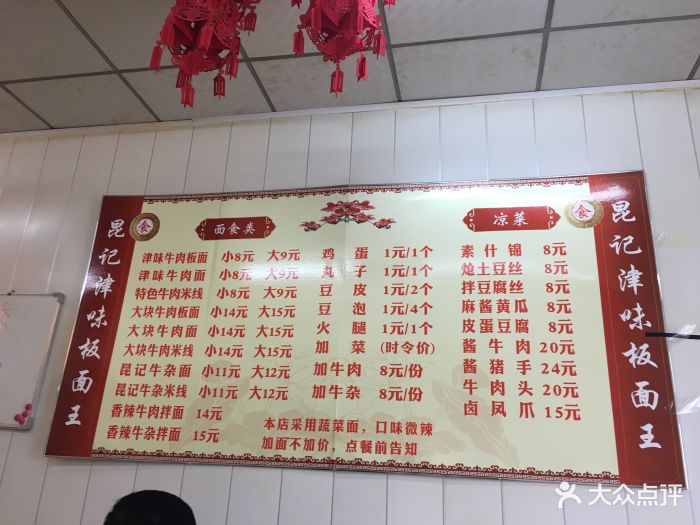 昆记津味板面王
食
面食类
津味牛肉板面 小8元 大9元
津味牛肉面 小8元 大9元
特色牛肉米线 小8元 大9元
大块牛肉板面 小14元 大15元
大块牛肉面 小14元 大15元
大块牛肉米线 小14元 大15元
昆记牛杂面 小11元 大12元
昆记牛杂米线 小11元 大12元
香辣牛肉拌面 14元
香辣牛杂拌面 15元
鸡蛋 1元/1个
丸子 1元/1个
豆皮 1元/2个
豆泡 1元/4个
火腿 1元/1个
加菜 (时令价)
加牛肉 8元/份
加牛杂 8元/份
本店采用蔬菜面，口味微辣
加面不加价，点餐前告知
凉菜
素什锦 8元
炝土豆丝 8元
拌豆腐丝 8元
麻酱黄瓜 8元
皮蛋豆腐 8元
酱牛肉 20元
酱猪手 24元
牛肉头 20元
卤凤爪 15元
食
昆记津味板面王
大众点评